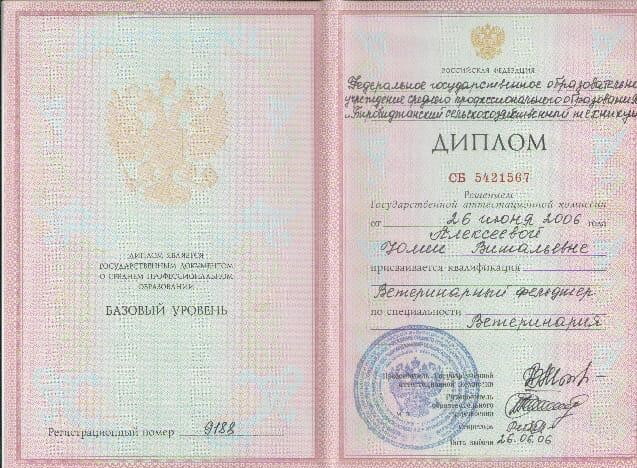 ДИПЛОМ ЯВЛЯЕТСЯ
ГОСУДАРСТВЕННЫМ ДОКУМЕНТОМ
О СРЕДНЕМ ПРОФЕССИОНАЛЬНОМ
ОБРАЗОВАНИИ
БАЗОВЫЙ УРОВЕНЬ
Регистрационный номер 9188
РОССИЙСКАЯ ФЕДЕРАЦИЯ
Федеральное государственное образовательное
учреждение среднего профессионального образования
"Биробиджанский сельскохозяйственный техникум"
ДИПЛОМ
СБ 5421567
Решением
Государственной аттестационной комиссии
от 26 июня 2006 года
Алексеевой
Юлии Витальевне
присваивается квалификация
Ветеринарный фельдшер
по специальности
Ветеринария
Председатель Государственной
аттестационной комиссии
Руководитель
образовательного
учреждения
Секретарь
Дата выдачи 26.06.06